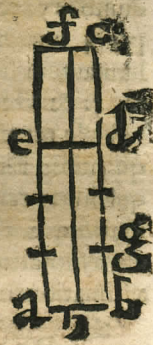 f c
e d
g
a h b